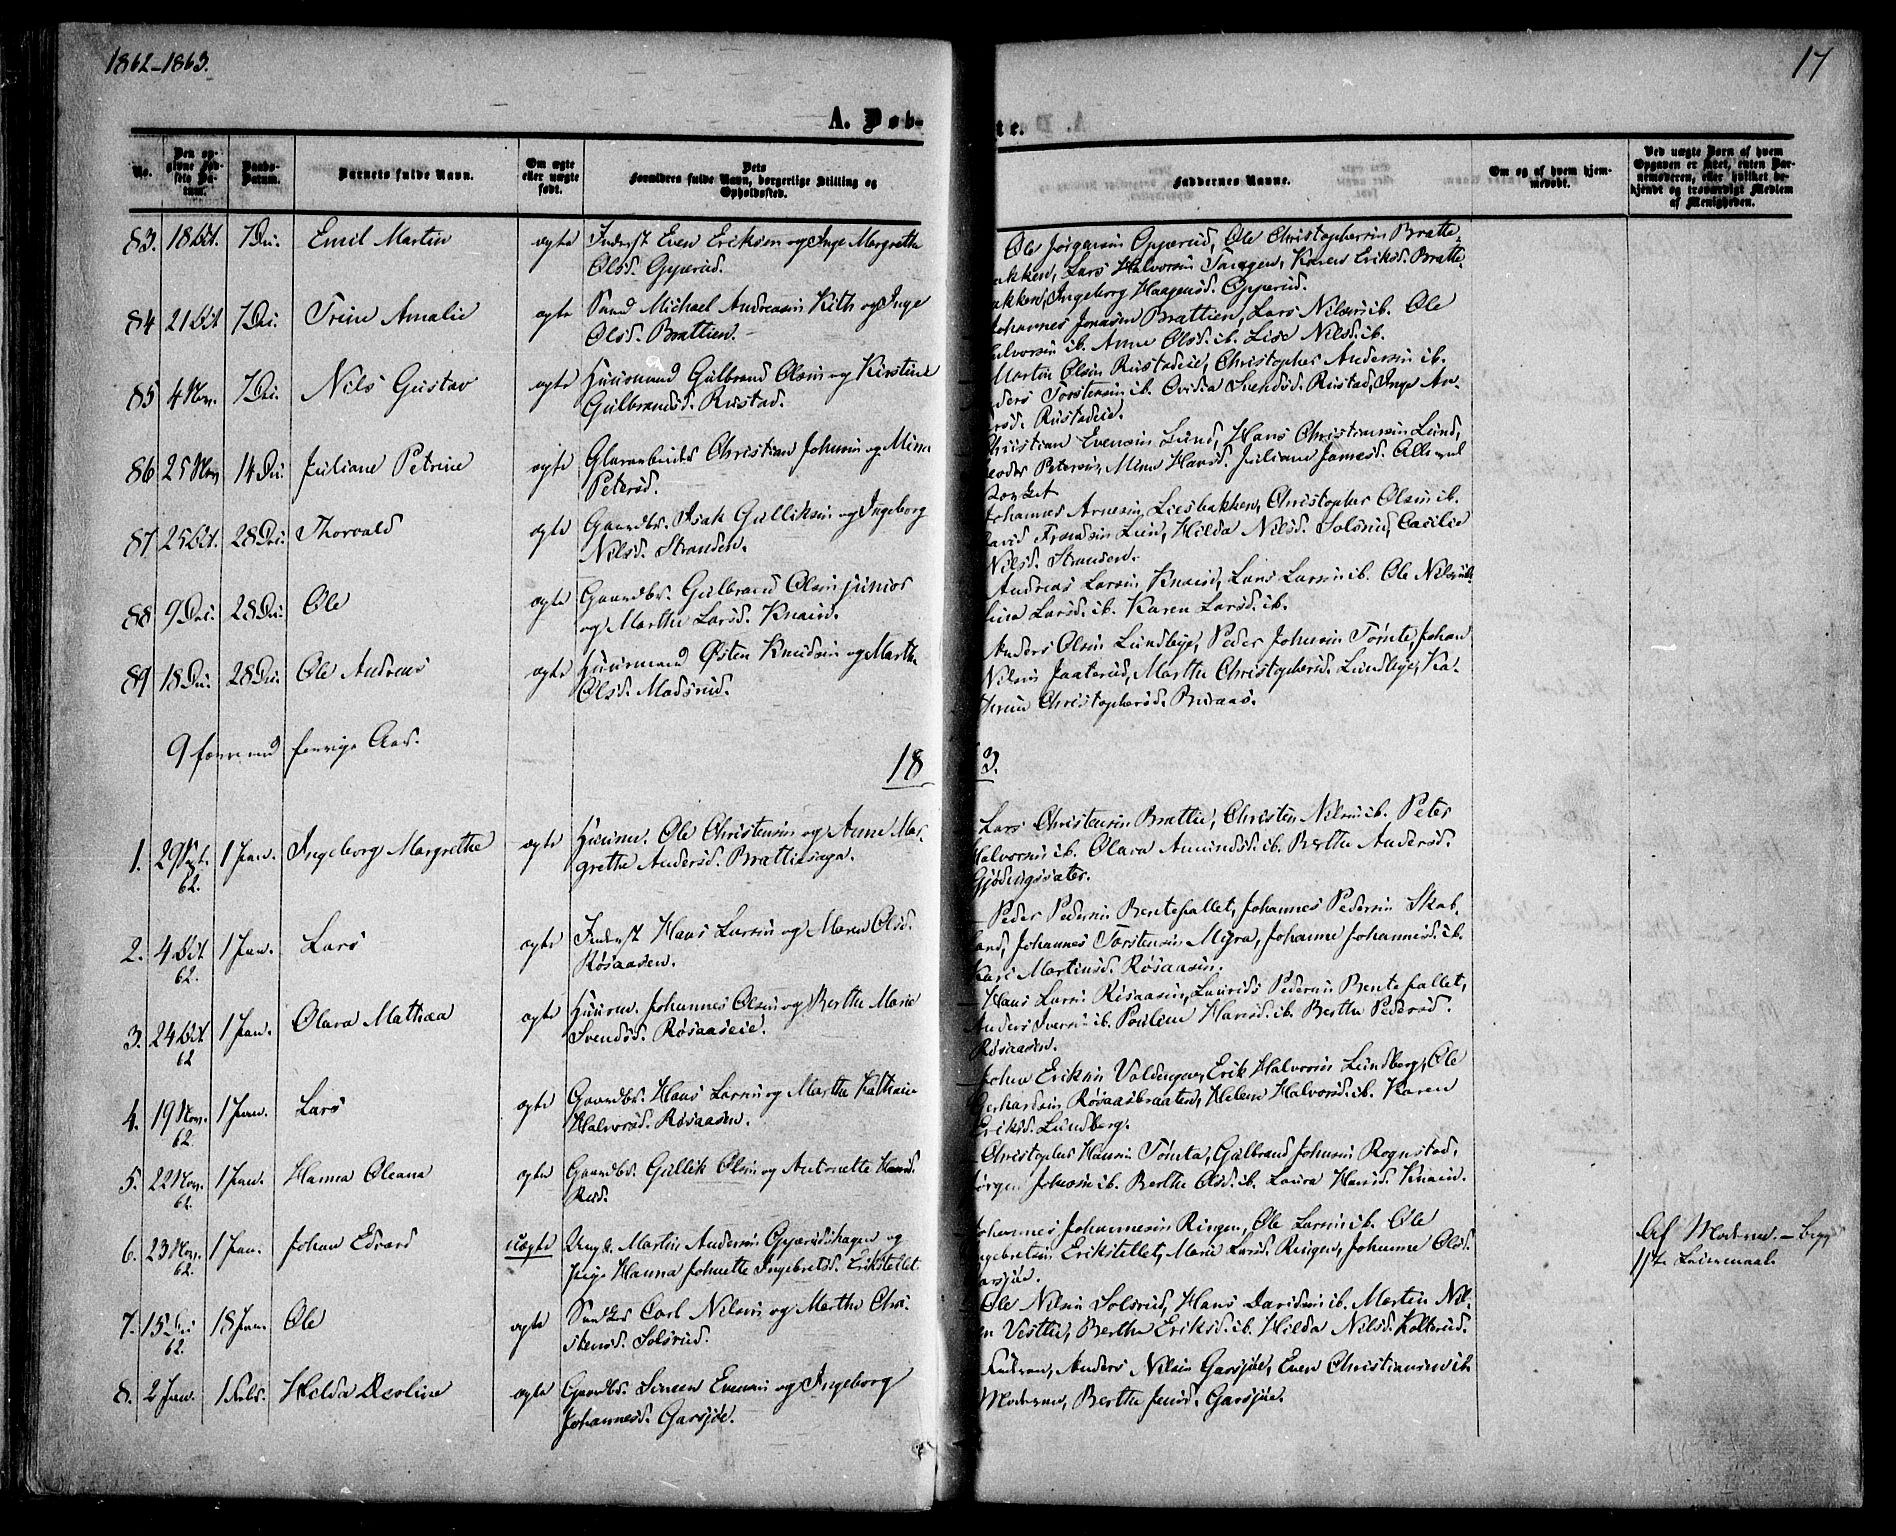 1862-1863.
17
A. Døb-
te.
No.
Den opgivne Fødsels Datum.
Daabs-Datum.
Barnets fulde Navn.
Om ægte eller uægte født.
Dets Forældres fulde Navn, borgerlige Stilling og Opholdssted.
Faddernes Navne.
Om og af hvem hjemmedøbt.
Ved uægte Børn af hvem Opgaven er skeet, enten Barnemoderen, eller hvilket bekjendt og troværdigt Medlem af Menigheden.
83. 18 Oct. 7 Dec. Emil Martin ægte Inderst Even Eriksen og Inge Margrethe
Olsd. Opperud.
Ole Jørgensen Opperud, Ole Christophersen Bratte-
bakken, Lars Halvorsen Karen Eriksd. Bratte-
bakken, Ingeborg Haagensd. Opperud.
84 21 Oct 7 Dec. Trine Amalie ægte Michael Andreasen Kith og Inge
Olsd. Brattien.
Johannes Jonasen Brattien, Lars Nilsen ib. Ole
Halvorsen ib. Anne Olsd. ib. Lise Nilsd. ib.
85 4 Nov. 7 Dec. Nils Gustav ægte Huusmand Gulbrand Olsen og Kirstine
Gulbrandsd. Rustad.
Martin Olsen Rustadeie, Christopher Andersen ib.
Anders Torstensen ib. Svendsd. Rustad, Inge An-
dersd. Rustadeie.
86 25 Nov 14 Dec. Juliane Petrine ægte Glasarbeider Christian Johnsen og Mina
Petersd.
Christian Evensen Lund, Hans Christiansen Lund,
Petersen, Mina Hansd. Juliane Jamesd. Alle ved
87 25 Oct. 28 Dec. Thorvald ægte Gaardbr. Isak Gulliksen og Ingeborg
Nilsd. Stranden.
Johannes Arnesen Liesbakken, Christopher Olsen ib.
David Frandsen Lien, Hilda Nilsd. Solsrud, Cecilie
Nilsd. Stranden.
88 9 Dec. 28 Dec. Ole ægte Gaardbr. Gulbrand Olsen junior
og Marthe Larsd. Knain.
Andreas Larsen Knain, Lars Larsen ib. Ole Nilsen ib.
Larsd. ib. Karen Larsd. ib.
89 18 Dec. 28 Dec. Ole Andreas ægte Huusmand Østen Knudsen og Marthe
Olsd. Madsrud.
Anders Olsen Lundbye, Peder Johnsen Tømte, Johan
Nilsen Jaaterud, Marthe Christophersd. Lundbye, Ka-
thrine Christophersd. Buraas.
9 færre end forrige Aar.
18 3.
1. 29 Sept. 62. 1 Jan. Ingeborg Margrethe ægte Huusm. Ole Christensen og Anne Mar-
grethe Andersd. Brattiesaga.
Lars Christensen Brattie, Christen Nilsen ib. Peter
Halvorsen ib. Olava Amundsd. ib. Berthe Andersd.
Gjødingssæter.
2. 4 Oct. 62. 1 Jan. Lars ægte Inderst Hans Larsen og Maren Olsd.
Røsaasen.
Peder Pedersen Bentefallet, Johannes Pedersen Skab-
land, Johannes Torstensen Myra, Johanne Johannesd. ib.
Kari Martinsd. Røsaasen.
3. 24 Oct 62 1 Jan. Olava Mathea ægte Huusm. Johannes Olsen og Berthe Marie
Svendsd. Røsaaseie.
Hans Larsen Røsaasen, Laurids Pedersen Bentefallet,
Anders Iversen ib. Pouline Hansd. ib. Berthe Pedersd.
Røsaasen.
4. 19 Nov. 62. 1 Jan. Lars ægte Gaardbr. Hans Larsen og Marthe Kathrine
Halvorsd. Røsaasen.
John Eriksen Valdengen, Erik Halvorsen Lundberg, Ole
Gerhardsen Røsaasbraaten, Helene Halvorsd. ib. Karen
Eriksd. Lundberg.
5. 22 Nov. 62. 1 Jan. Hanna Oleana ægte Gaardbr. Gullik Olsen og Antonette Hansd.
Rud.
Christopher Hansen Tømta, Gulbrand Johnsen Rognstad,
Jørgen Johnsen ib. Berthe Olsd. ib. Laura Hansd. Knain.
6. 23 Nov. 62. 1 Jan. Johan Edvard uægte Ungk. Martin Andersen Opperudshagen og
Pige Hanna Johnette Ingebretsd. Erikstellet
Johannes Johannesen Ringen, Ole Larsen ib. Ole
Ingebretsen Erikstellet, Marie Larsd. Ringen, Johanne Olsd.
Garsjøe.
Af Moderen. – begge
1ste Leiermaal.
7. 15 Dec 62. 18 Jan. Ole ægte Carl Nilsen og Marthe Chri-
stensd. Solsrud.
Ole Nilsen Solsrud, Hans Davidsen ib. Martin Nil-
sen Vestlie, Berthe Eriksd. ib. Hilda Nilsd. Kolterud.
8. 2 Jan. 1 Febr. Hilda Nicoline ægte Gaardbr. Simen Evensen og Ingeborg
Johannesd. Garsjøe.
Faderen, Anders Nilsen Garsjøe, Even Christiansen ib.
Moderen, Berthe Jensd. Garsjøe.